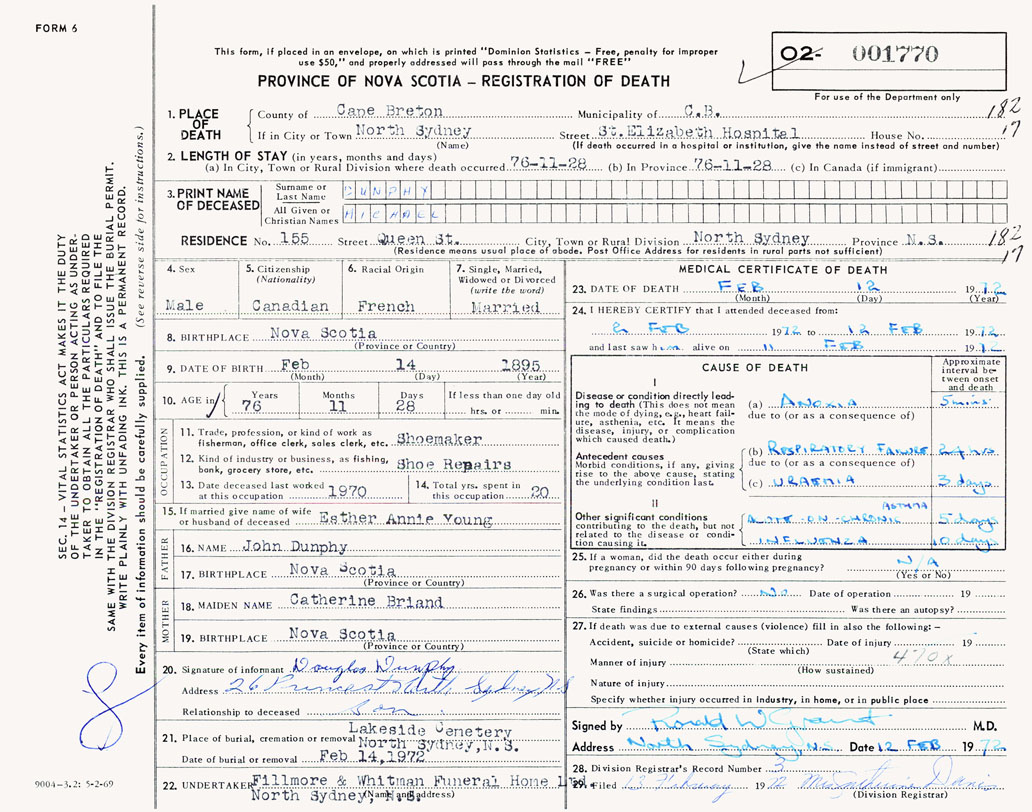 FORM 6
This form, if placed in an envelope, on which is printed "Dominion Statistics — Free, penalty for improper
use $50," and properly addressed will pass through the mail "FREE"
PROVINCE OF NOVA SCOTIA — REGISTRATION OF DEATH
02- 001770
For use of the Department only
1. PLACE OF DEATH
County of Cape Breton Municipality of C.B. 182
If in City or Town North Sydney Street St.Elizabeth Hospital House No. 17
(Name) (If death occurred in a hospital or institution, give the name instead of street and number)
2. LENGTH OF STAY (in years, months and days)
(a) In City, Town or Rural Division where death occurred 76-11-28 (b) In Province 76-11-28 (c) In Canada (if immigrant)
3. PRINT NAME OF DECEASED
Surname or Last Name DUNPHY
All Given or Christian Names MICHAEL
RESIDENCE No. 155 Street Queen St. City, Town or Rural Division North Sydney Province N.S. 182
(Residence means usual place of abode. Post Office Address for residents in rural parts not sufficient) 17
4. Sex
Male
5. Citizenship
(Nationality)
Canadian
6. Racial Origin
French
7. Single, Married,
Widowed or Divorced
(write the word)
Married
8. BIRTHPLACE Nova Scotia
(Province or Country)
9. DATE OF BIRTH Feb 14 1895
(Month) (Day) (Year)
10. AGE in
Years Months Days If less than one day old
76 11 28 hrs. or min.
OCCUPATION
11. Trade, profession, or kind of work as
fisherman, office clerk, sales clerk, etc. Shoemaker
12. Kind of industry or business, as fishing,
bank, grocery store, etc. Shoe Repairs
13. Date deceased last worked
at this occupation 1970
14. Total yrs. spent in
this occupation 20
15. If married give name of wife
or husband of deceased Esther Annie Young
FATHER
16. NAME John Dunphy
17. BIRTHPLACE Nova Scotia
(Province or Country)
MOTHER
18. MAIDEN NAME Catherine Briand
19. BIRTHPLACE Nova Scotia
(Province or Country)
20. Signature of informant Douglas Dunphy
Address 26 Princess St North Sydney N.S
Relationship to deceased Son
21. Place of burial, cremation or removal Lakeside Cemetery
North Sydney, N.S.
Date of burial or removal Feb 14, 1972
22. UNDERTAKER Fillmore & Whitman Funeral Home Ltd.
North Sydney, N.S.
(Name and address)
MEDICAL CERTIFICATE OF DEATH
23. DATE OF DEATH FEB 12 1972
(Month) (Day) (Year)
24. I HEREBY CERTIFY that I attended deceased from:
2 FEB 1972 to 12 FEB 1972
and last saw him alive on 11 FEB 1972
CAUSE OF DEATH
Approximate
interval be-
tween onset
and death
I
Disease or condition directly lead-
ing to death (This does not mean
the mode of dying, e.g., heart fail-
ure, asthenia, etc. It means the
disease, injury, or complication
which caused death.)
(a) ANOXIA 5 mins
due to (or as a consequence of)
Antecedent causes
Morbid conditions, if any, giving
rise to the above cause, stating
the underlying condition last.
(b) RESPIRATORY FAILURE 2 hrs
due to (or as a consequence of)
(c) URAEMIA 3 days
II
Other significant conditions
contributing to the death, but not
related to the disease or condi-
tion causing it.
ASTHMA
ACUTE-ON-CHRONIC 5 days
INFLUENZA 10 days
25. If a woman, did the death occur either during
pregnancy or within 90 days following pregnancy? N/A
(Yes or No)
26. Was there a surgical operation? No Date of operation 19
State findings Was there an autopsy?
27. If death was due to external causes (violence) fill in also the following:—
Accident, suicide or homicide? Date of injury 19
(State which)
Manner of injury 470X
(How sustained)
Nature of injury
Specify whether injury occurred in industry, in home, or in public place
Signed by Ronald W Grant M.D.
Address North Sydney, N.S. Date 12 FEB 1972
28. Division Registrar's Record Number 3
29. Filed 13 February 1972
(Division Registrar)
SEC. 14 — VITAL STATISTICS ACT MAKES IT THE DUTY
OF THE UNDERTAKER OR PERSON ACTING AS UNDER-
TAKER TO OBTAIN ALL THE PARTICULARS REQUIRED
IN THE "REGISTRATION OF DEATH" AND TO FILE THE
SAME WITH THE DIVISION REGISTRAR WHO SHALL ISSUE THE BURIAL PERMIT.
WRITE PLAINLY WITH UNFADING INK. THIS IS A PERMANENT RECORD.
Every item of information should be carefully supplied. (See reverse side for instructions.)
8
9004-3.2: 5-2-69